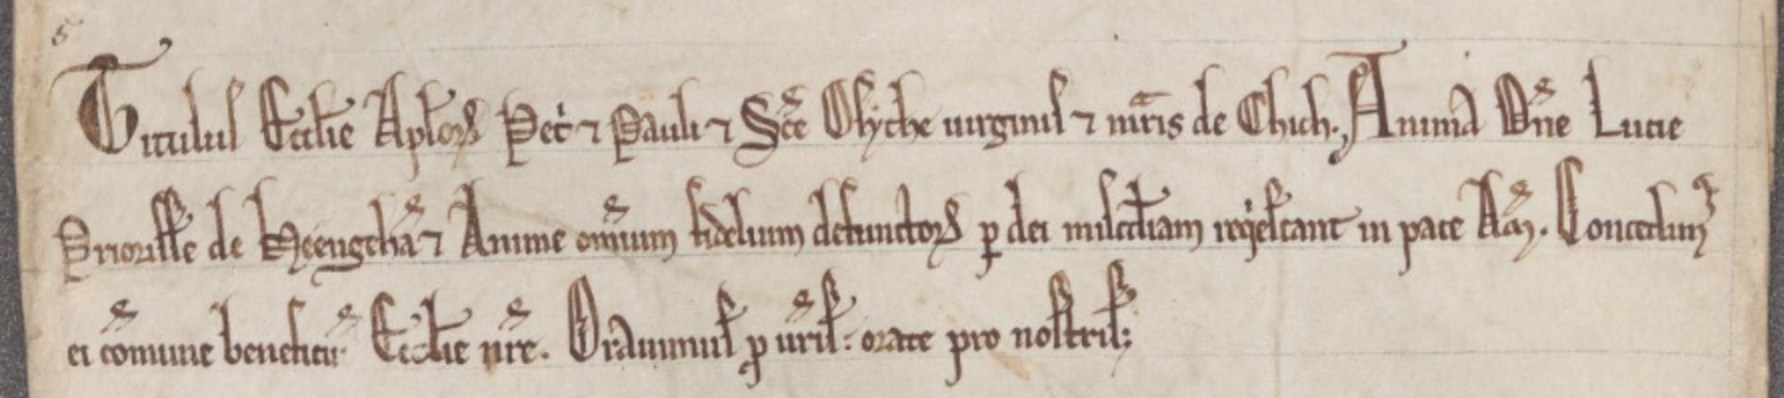 5
Titulus Eccl̄ie Apl̄oꝝ Pet̉ ⁊ Pauli ⁊ Sc̄e Osẏthe uirginis ⁊ mr̄is de Chich. Anima Dn̄e Lucie
Priorisse de Heengehā ⁊ Anime om̄ium fidelium defunctoꝝ ꝑ dei misc̄diam req̇escant in pace Am̄. Concedimꝰ
ei cōmune beneficiū Eccl̄ie nr̄e. Orauimus ꝓ ur̄is: orate pro nostris;